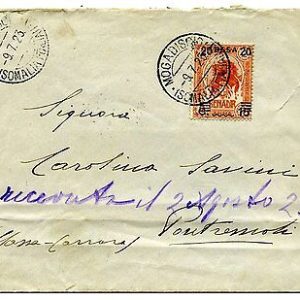 -9.7.23
MOGADISCIO
-9.7.23
(SOMALIA ITALIANA)
20 BESA 20
BENADIR
Signora
Carolina Savini
ricevuta il 2 Agosto 2
Pontremoli
(Massa-Carrara)